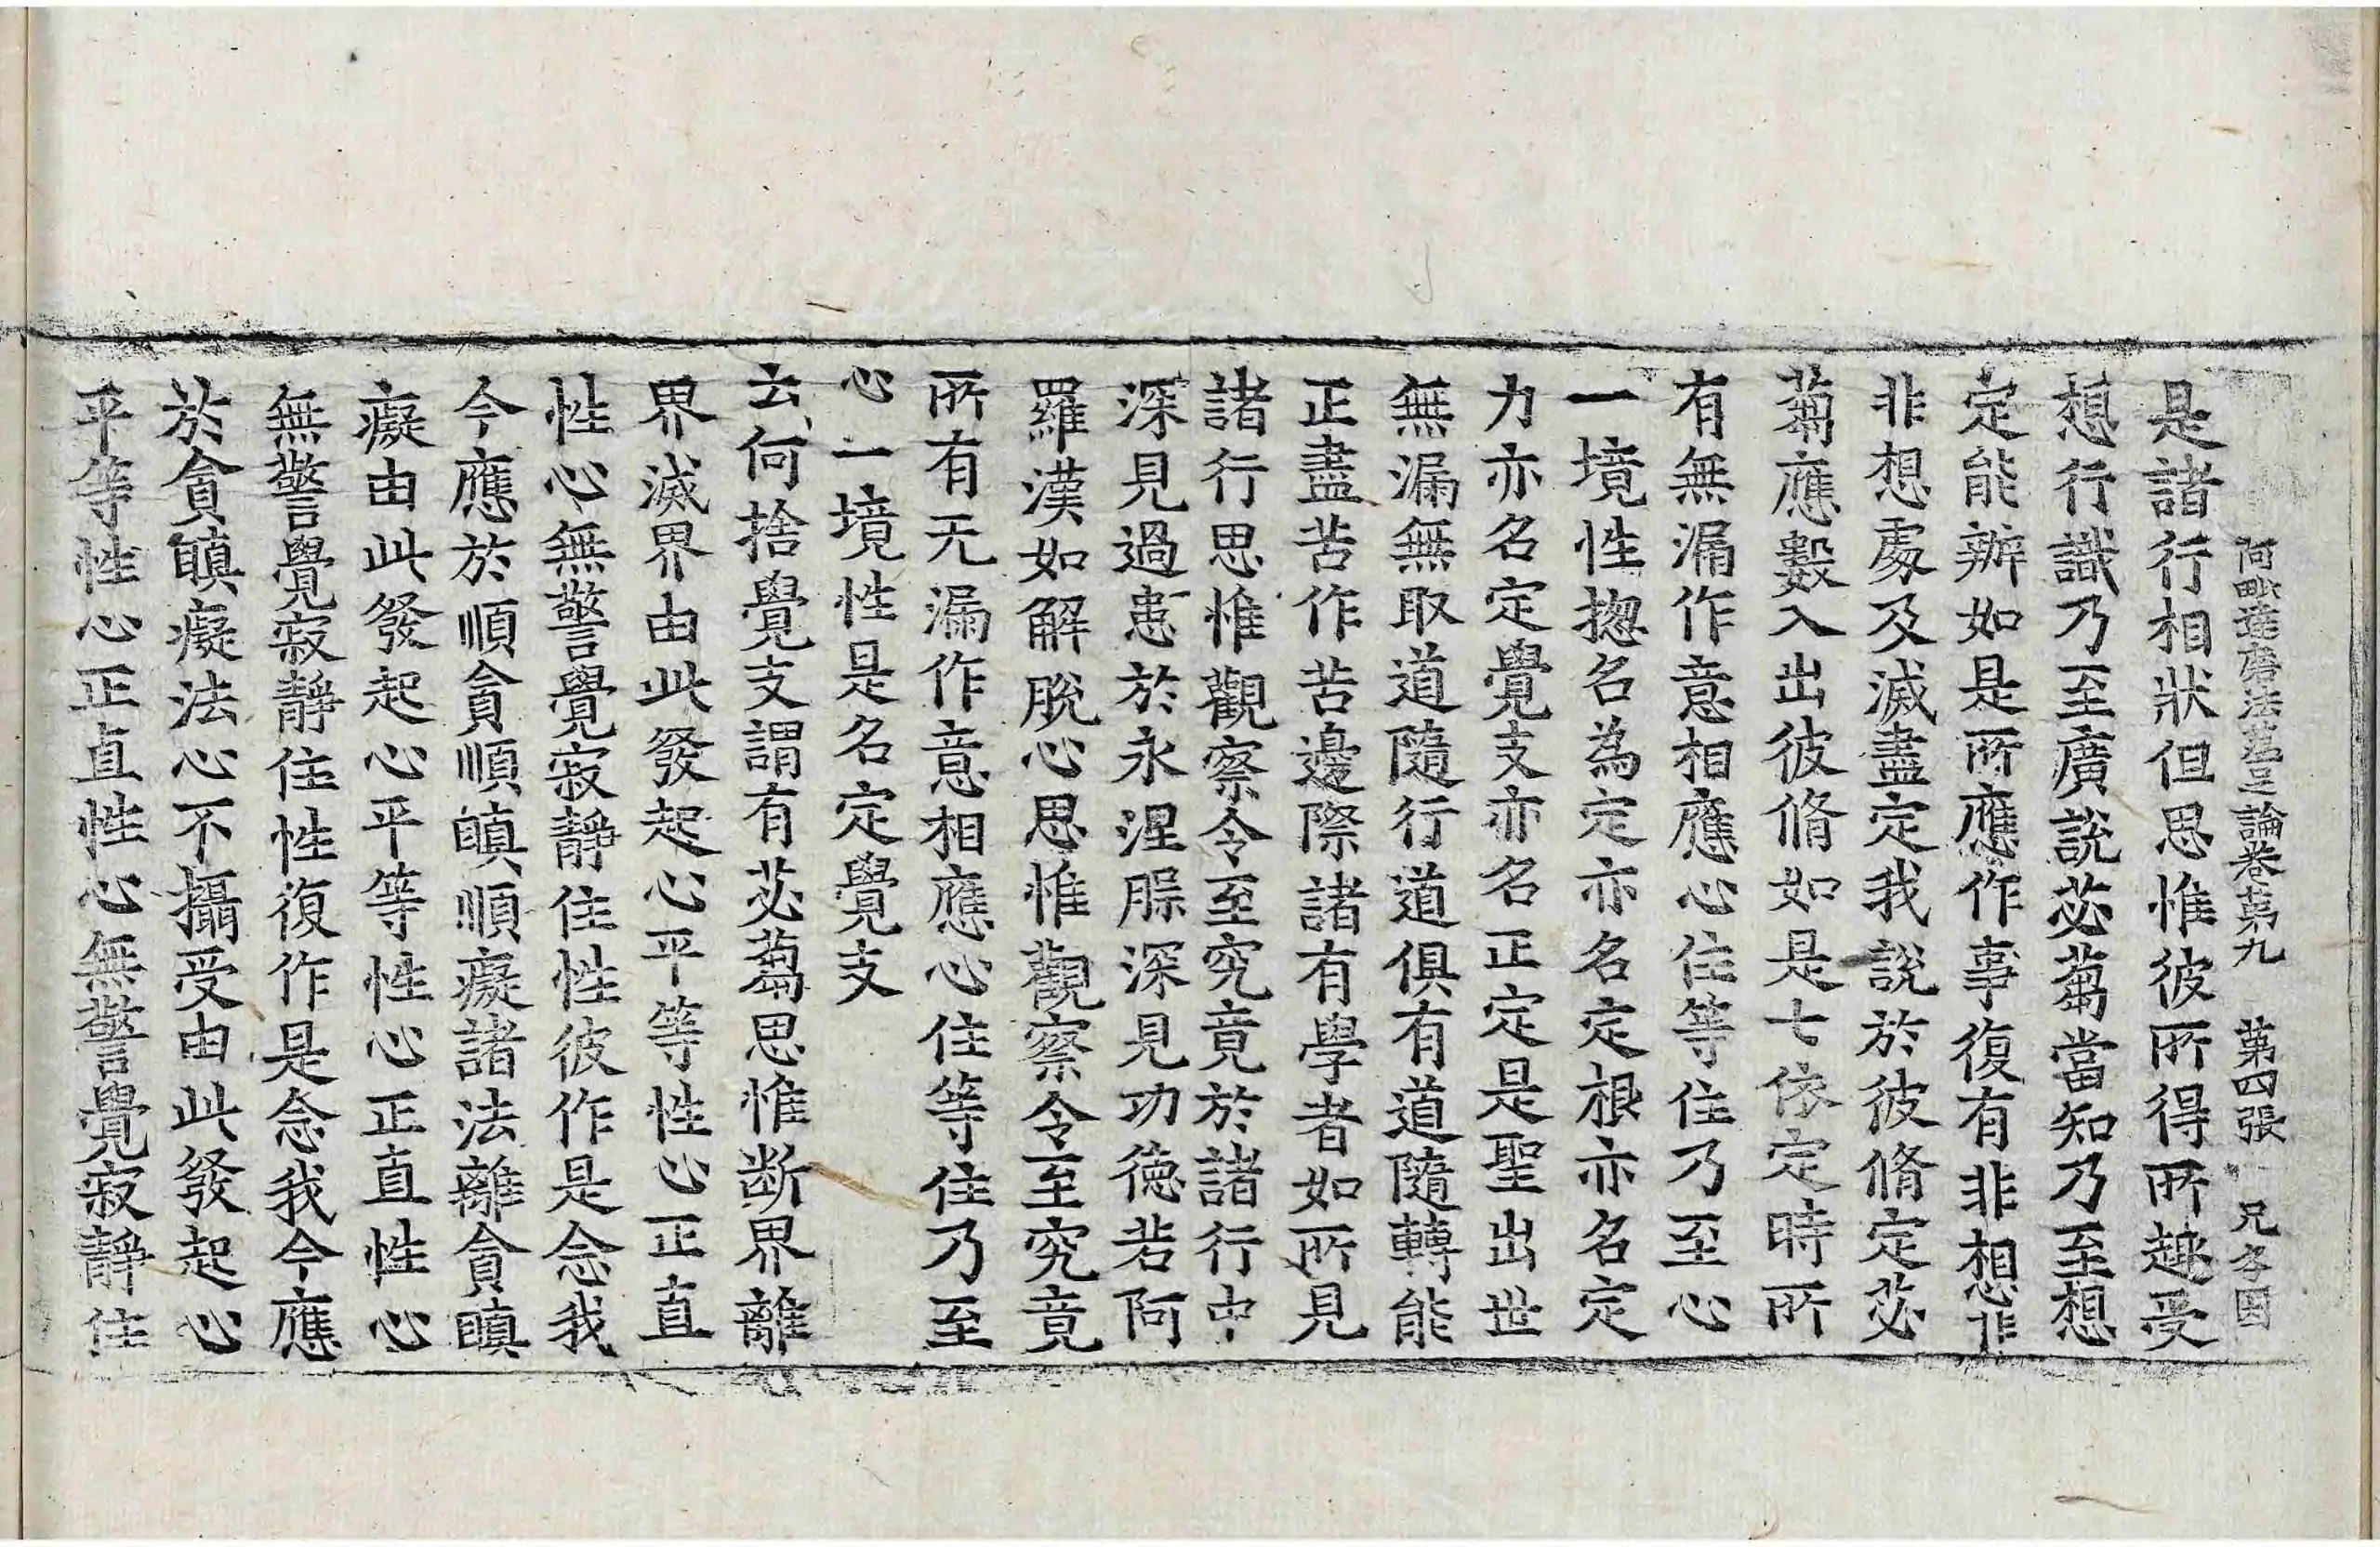 阿毗達磨法蘊足論卷第九　第四張　兄字因
是諸行相狀但思惟彼所得所趣受
想行識乃至廣說苾蒭當知乃至想
定能辦如是所應作事復有非想非
非想處及滅盡定我說於彼脩定苾
蒭應數入出彼脩如是七依定時所
有無漏作意相應心住等住乃至心
一境性揔名為定亦名定根亦名定
力亦名定覺支亦名正定是聖出世
無漏無取道隨行道俱有道隨轉能
正盡苦作苦邊際諸有學者如所見
諸行思惟觀察令至究竟於諸行中
深見過患於永涅槃深見功德若阿
羅漢如解脫心思惟觀察令至究竟
所有无漏作意相應心住等住乃至
心一境性是名定覺支
云何捨覺支謂有苾蒭思惟断界離
界滅界由此發起心平等性心正直
性心無警覺寂靜住性彼作是念我
今應於順貪順瞋順癡諸法離貪瞋
癡由此發起心平等性心正直性心
無警覺寂靜住性復作是念我今應
於貪瞋癡法心不攝受由此發起心
平等性心正直性心無警覺寂靜住